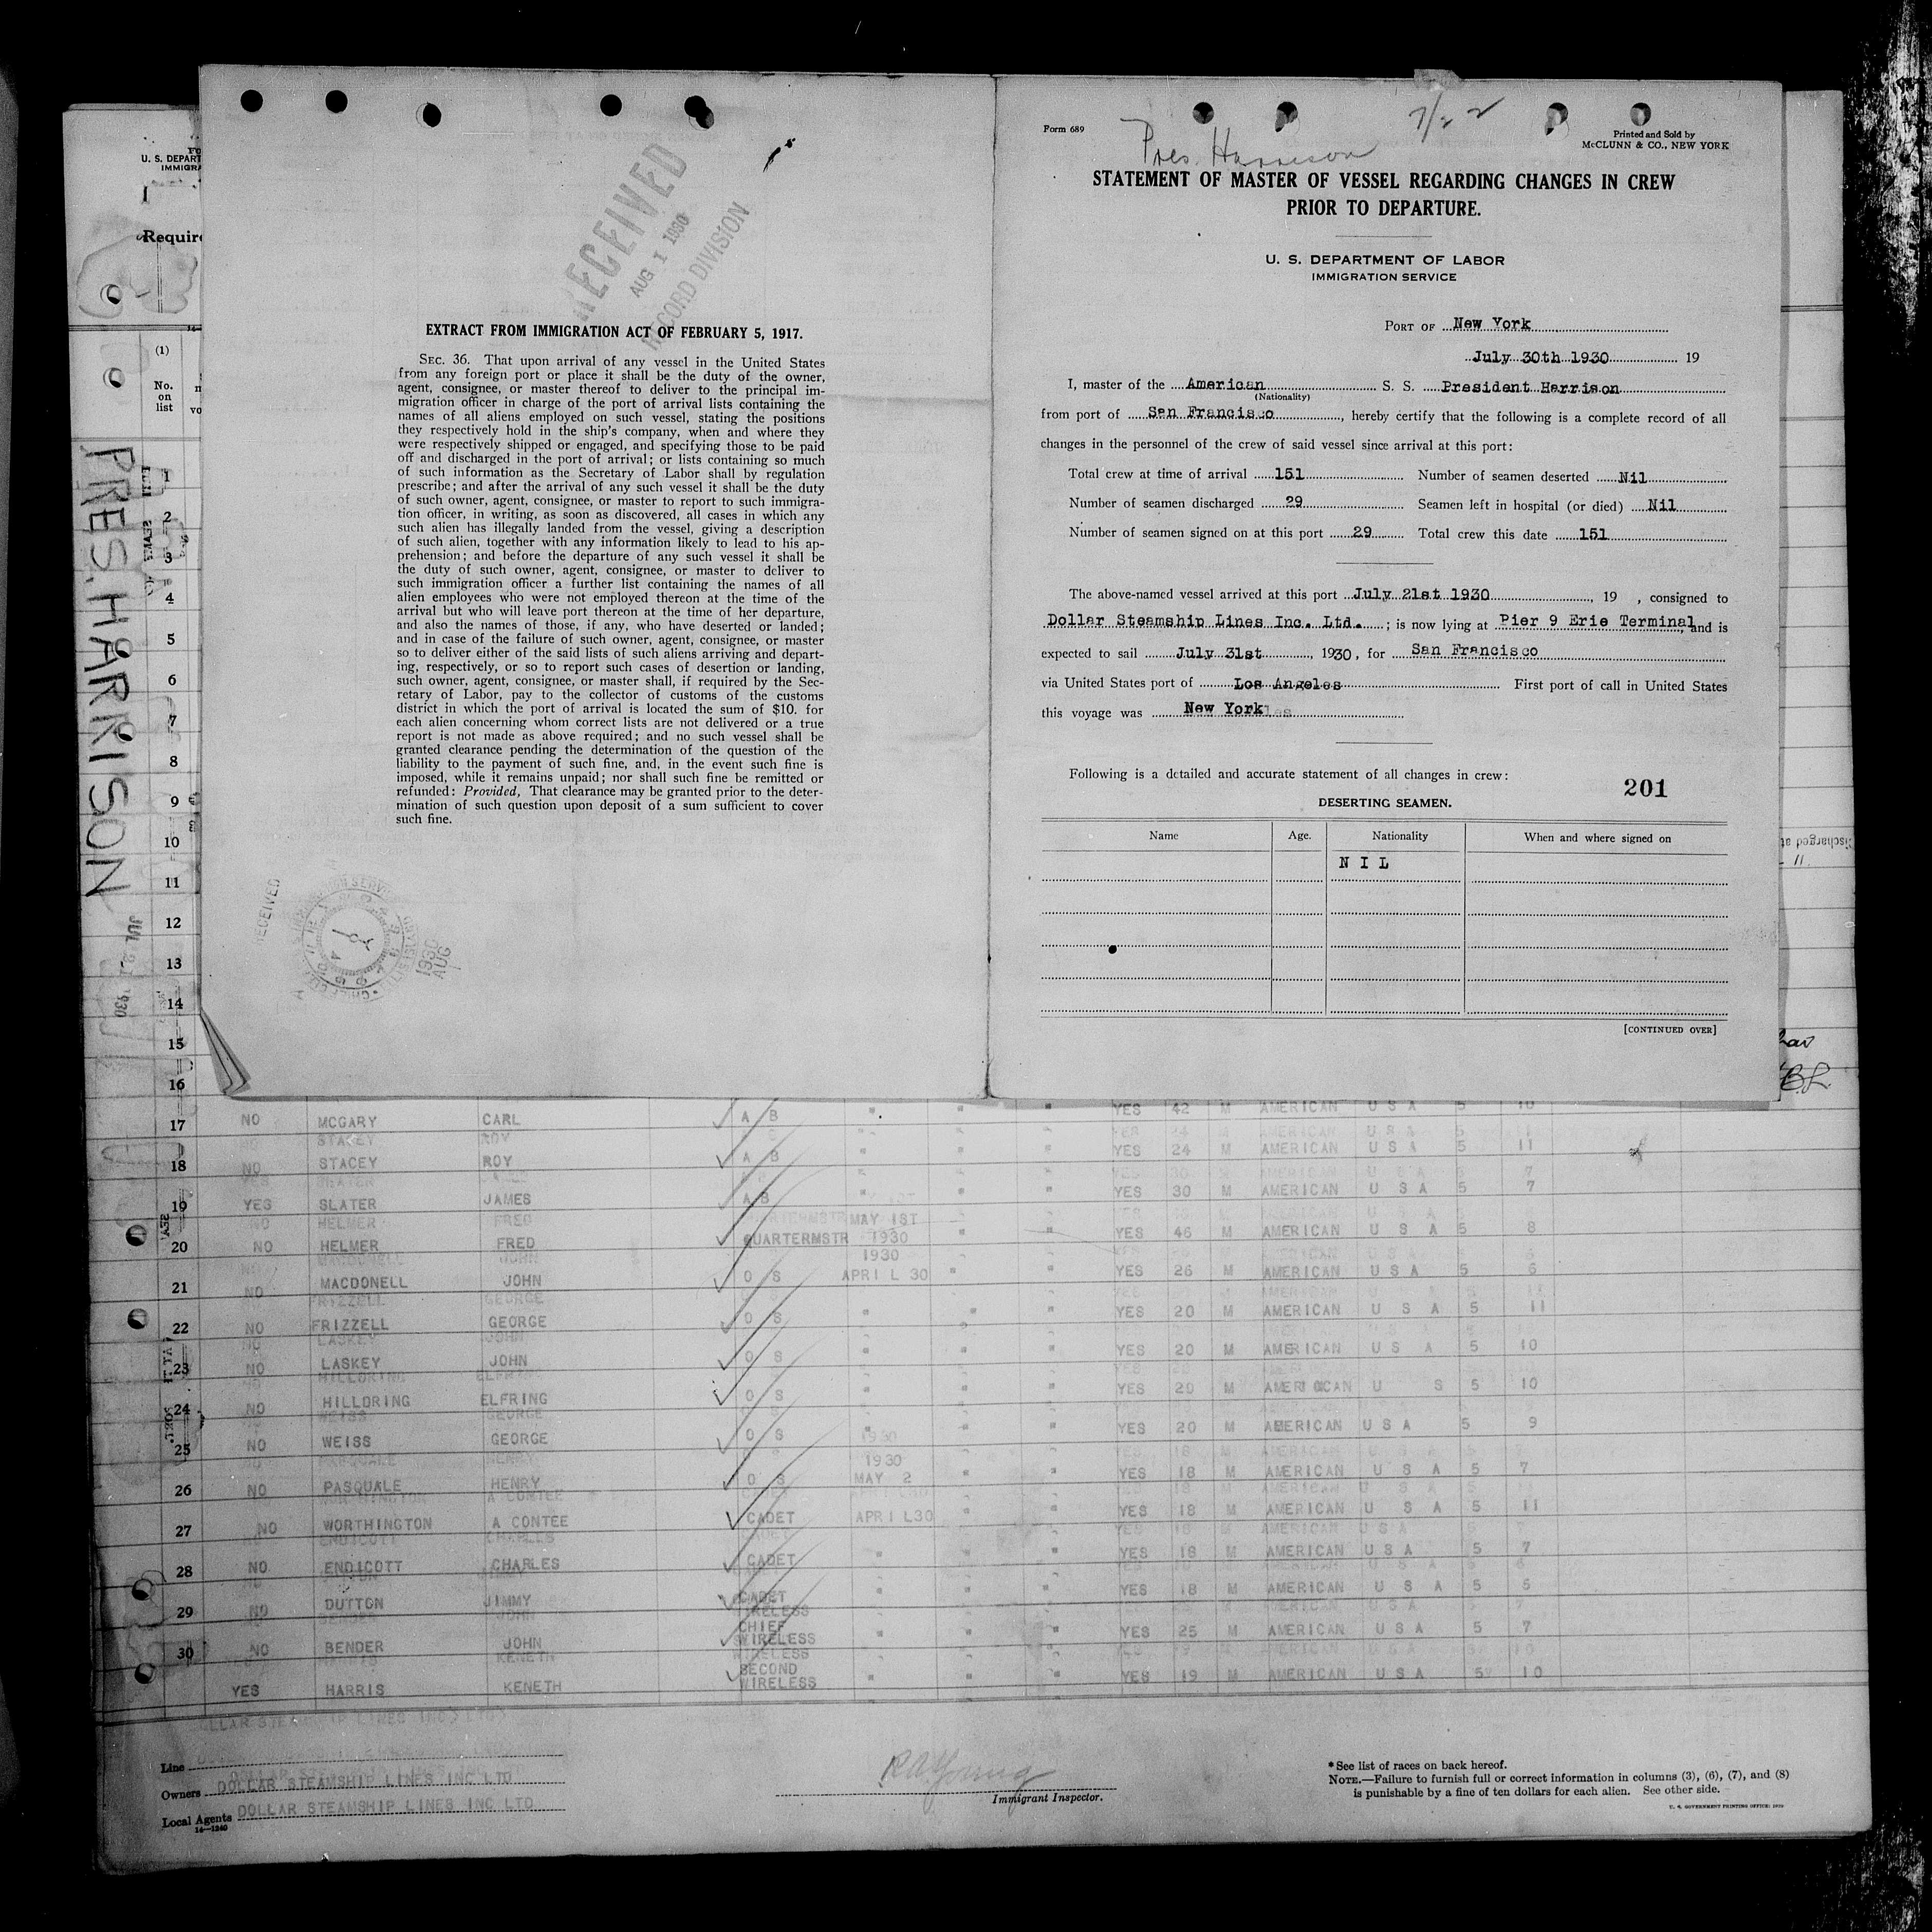 RECEIVED
AUG 1 1930
RECORD DIVISION
EXTRACT FROM IMMIGRATION ACT OF FEBRUARY 5, 1917.
SEC. 36. That upon arrival of any vessel in the United States
from any foreign port or place it shall be the duty of the owner,
agent, consignee, or master thereof to deliver to the principal im-
migration officer in charge of the port of arrival lists containing the
names of all aliens employed on such vessel, stating the positions
they respectively hold in the ship's company, when and where they
were respectively shipped or engaged, and specifying those to be paid
off and discharged in the port of arrival; or lists containing so much
of such information as the Secretary of Labor shall by regulation
prescribe; and after the arrival of any such vessel it shall be the duty
of such owner, agent, consignee, or master to report to such immigra-
tion officer, in writing, as soon as discovered, all cases in which any
such alien has illegally landed from the vessel, giving a description
of such alien, together with any information likely to lead to his ap-
prehension; and before the departure of any such vessel it shall be
the duty of such owner, agent, consignee, or master to deliver to
such immigration officer a further list containing the names of all
alien employees who were not employed thereon at the time of the
arrival but who will leave port thereon at the time of her departure,
and also the names of those, if any, who have deserted or landed;
and in case of the failure of such owner, agent, consignee, or master
so to deliver either of the said lists of such aliens arriving and depart-
ing, respectively, or so to report such cases of desertion or landing,
such owner, agent, consignee, or master shall, if required by the Sec-
retary of Labor, pay to the collector of customs of the customs
district in which the port of arrival is located the sum of $10. for
each alien concerning whom correct lists are not delivered or a true
report is not made as above required; and no such vessel shall be
granted clearance pending the determination of the question of the
liability to the payment of such fine, and, in the event such fine is
imposed, while it remains unpaid; nor shall such fine be remitted or
refunded: Provided, That clearance may be granted prior to the deter-
mination of such question upon deposit of a sum sufficient to cover
such fine.
RECEIVED
1930 AUG
Form 689
Pres. Harrison
7/22
Printed and Sold by
McCLUNN & CO., NEW YORK
STATEMENT OF MASTER OF VESSEL REGARDING CHANGES IN CREW
PRIOR TO DEPARTURE.
U. S. DEPARTMENT OF LABOR
IMMIGRATION SERVICE
PORT OF New York
July 30th 1930 19
I, master of the American S. S. President Harrison
(Nationality)
from port of San Francisco, hereby certify that the following is a complete record of all
changes in the personnel of the crew of said vessel since arrival at this port:
Total crew at time of arrival 151 Number of seamen deserted Nil
Number of seamen discharged 29 Seamen left in hospital (or died) Nil
Number of seamen signed on at this port 29 Total crew this date 151
The above-named vessel arrived at this port July 21st 1930, 19 , consigned to
Dollar Steamship Lines Inc. Ltd. ; is now lying at Pier 9 Erie Terminal and is
expected to sail July 31st, 1930, for San Francisco
via United States port of Los Angeles First port of call in United States
this voyage was New York
Following is a detailed and accurate statement of all changes in crew:
201
DESERTING SEAMEN.
Name Age. Nationality When and where signed on
N I L
[CONTINUED OVER]
U. S. DEPART
IMMIGRA
Require
(1)
No.
on
list
PRES. HARRISON
JUL 21 1930
1
2
3
4
5
6
7
8
9
10
11
12
13
14
15
16
17 NO MCGARY CARL A B " " " YES 42 M AMERICAN U S A 5 10
18 NO STACEY ROY A B " " " YES 24 M AMERICAN U S A 5 11
19 YES SLATER JAMES A B " " YES 30 M AMERICAN U S A 5 7
20 NO HELMER FRED QUARTERMSTR MAY 1ST 1930 " " YES 46 M AMERICAN U S A 5 8
21 NO MACDONELL JOHN O S 1930 APRIL 30 " " YES 26 M AMERICAN U S A 5 6
22 NO FRIZZELL GEORGE O S " " " YES 20 M AMERICAN U S A 5 11
23 NO LASKEY JOHN O S " " " YES 20 M AMERICAN U S A 5 10
24 NO HILLDRING ELFRING O S " " " YES 20 M AMERICAN U S 5 10
25 NO WEISS GEORGE O S " " " YES 20 M AMERICAN U S A 5 9
26 NO PASQUALE HENRY O S 1930 MAY 2 " " YES 18 M AMERICAN U S A 5 7
27 NO WORTHINGTON A CONTEE CADET APRIL30 " " YES 18 M AMERICAN U S A 5 11
28 NO ENDICOTT CHARLES CADET " " " YES 18 M AMERICAN U S A 5 7
29 NO DUTTON JIMMY CADET " " " YES 18 M AMERICAN U S A 5
30 NO BENDER JOHN CHIEF WIRELESS " " " YES 25 M AMERICAN U S A 5 7
YES HARRIS KENETH SECOND WIRELESS " " " YES 19 M AMERICAN U S A 5 10
Line
Owners DOLLAR STEAMSHIP LINES INC LTD
Local Agents DOLLAR STEAMSHIP LINES INC LTD
14—1240
Immigrant Inspector.
*See list of races on back hereof.
NOTE.—Failure to furnish full or correct information in columns (3), (6), (7), and (8)
is punishable by a fine of ten dollars for each alien. See other side.
U. S. GOVERNMENT PRINTING OFFICE: 1929